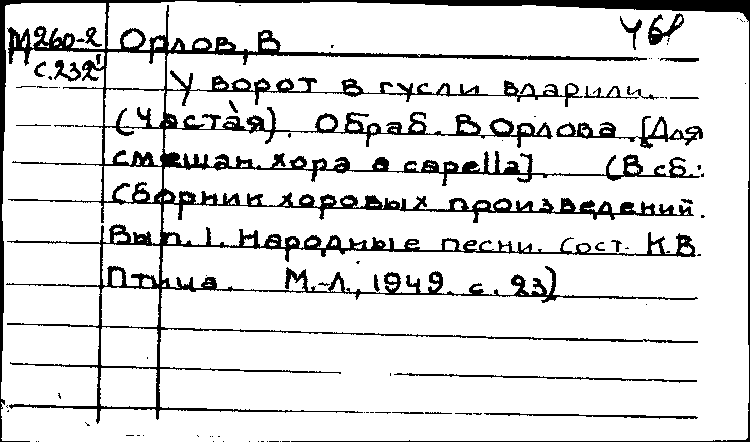 М260-2 Орлов, В
с.232
У ворот в гусли вдарили.
(Частая). Обраб. В.Орлова. [Для
смешан. хора a capella]. (В сб.:
Сборник хоровых произведений.
Вып. 1. Народные песни. Сост. К.В.
Птица. М.-Л., 1949. с. 23)